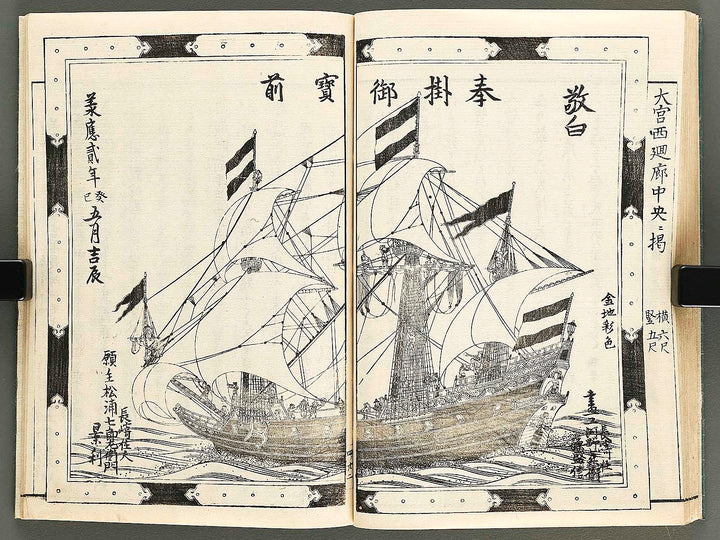 大宮西廻廊中央ニ掲
横六尺
竪五尺
敬白
奉掛御寳前
金地彩色
承應貳年癸巳五月吉辰
長崎住人
願主松浦七郎右衛門